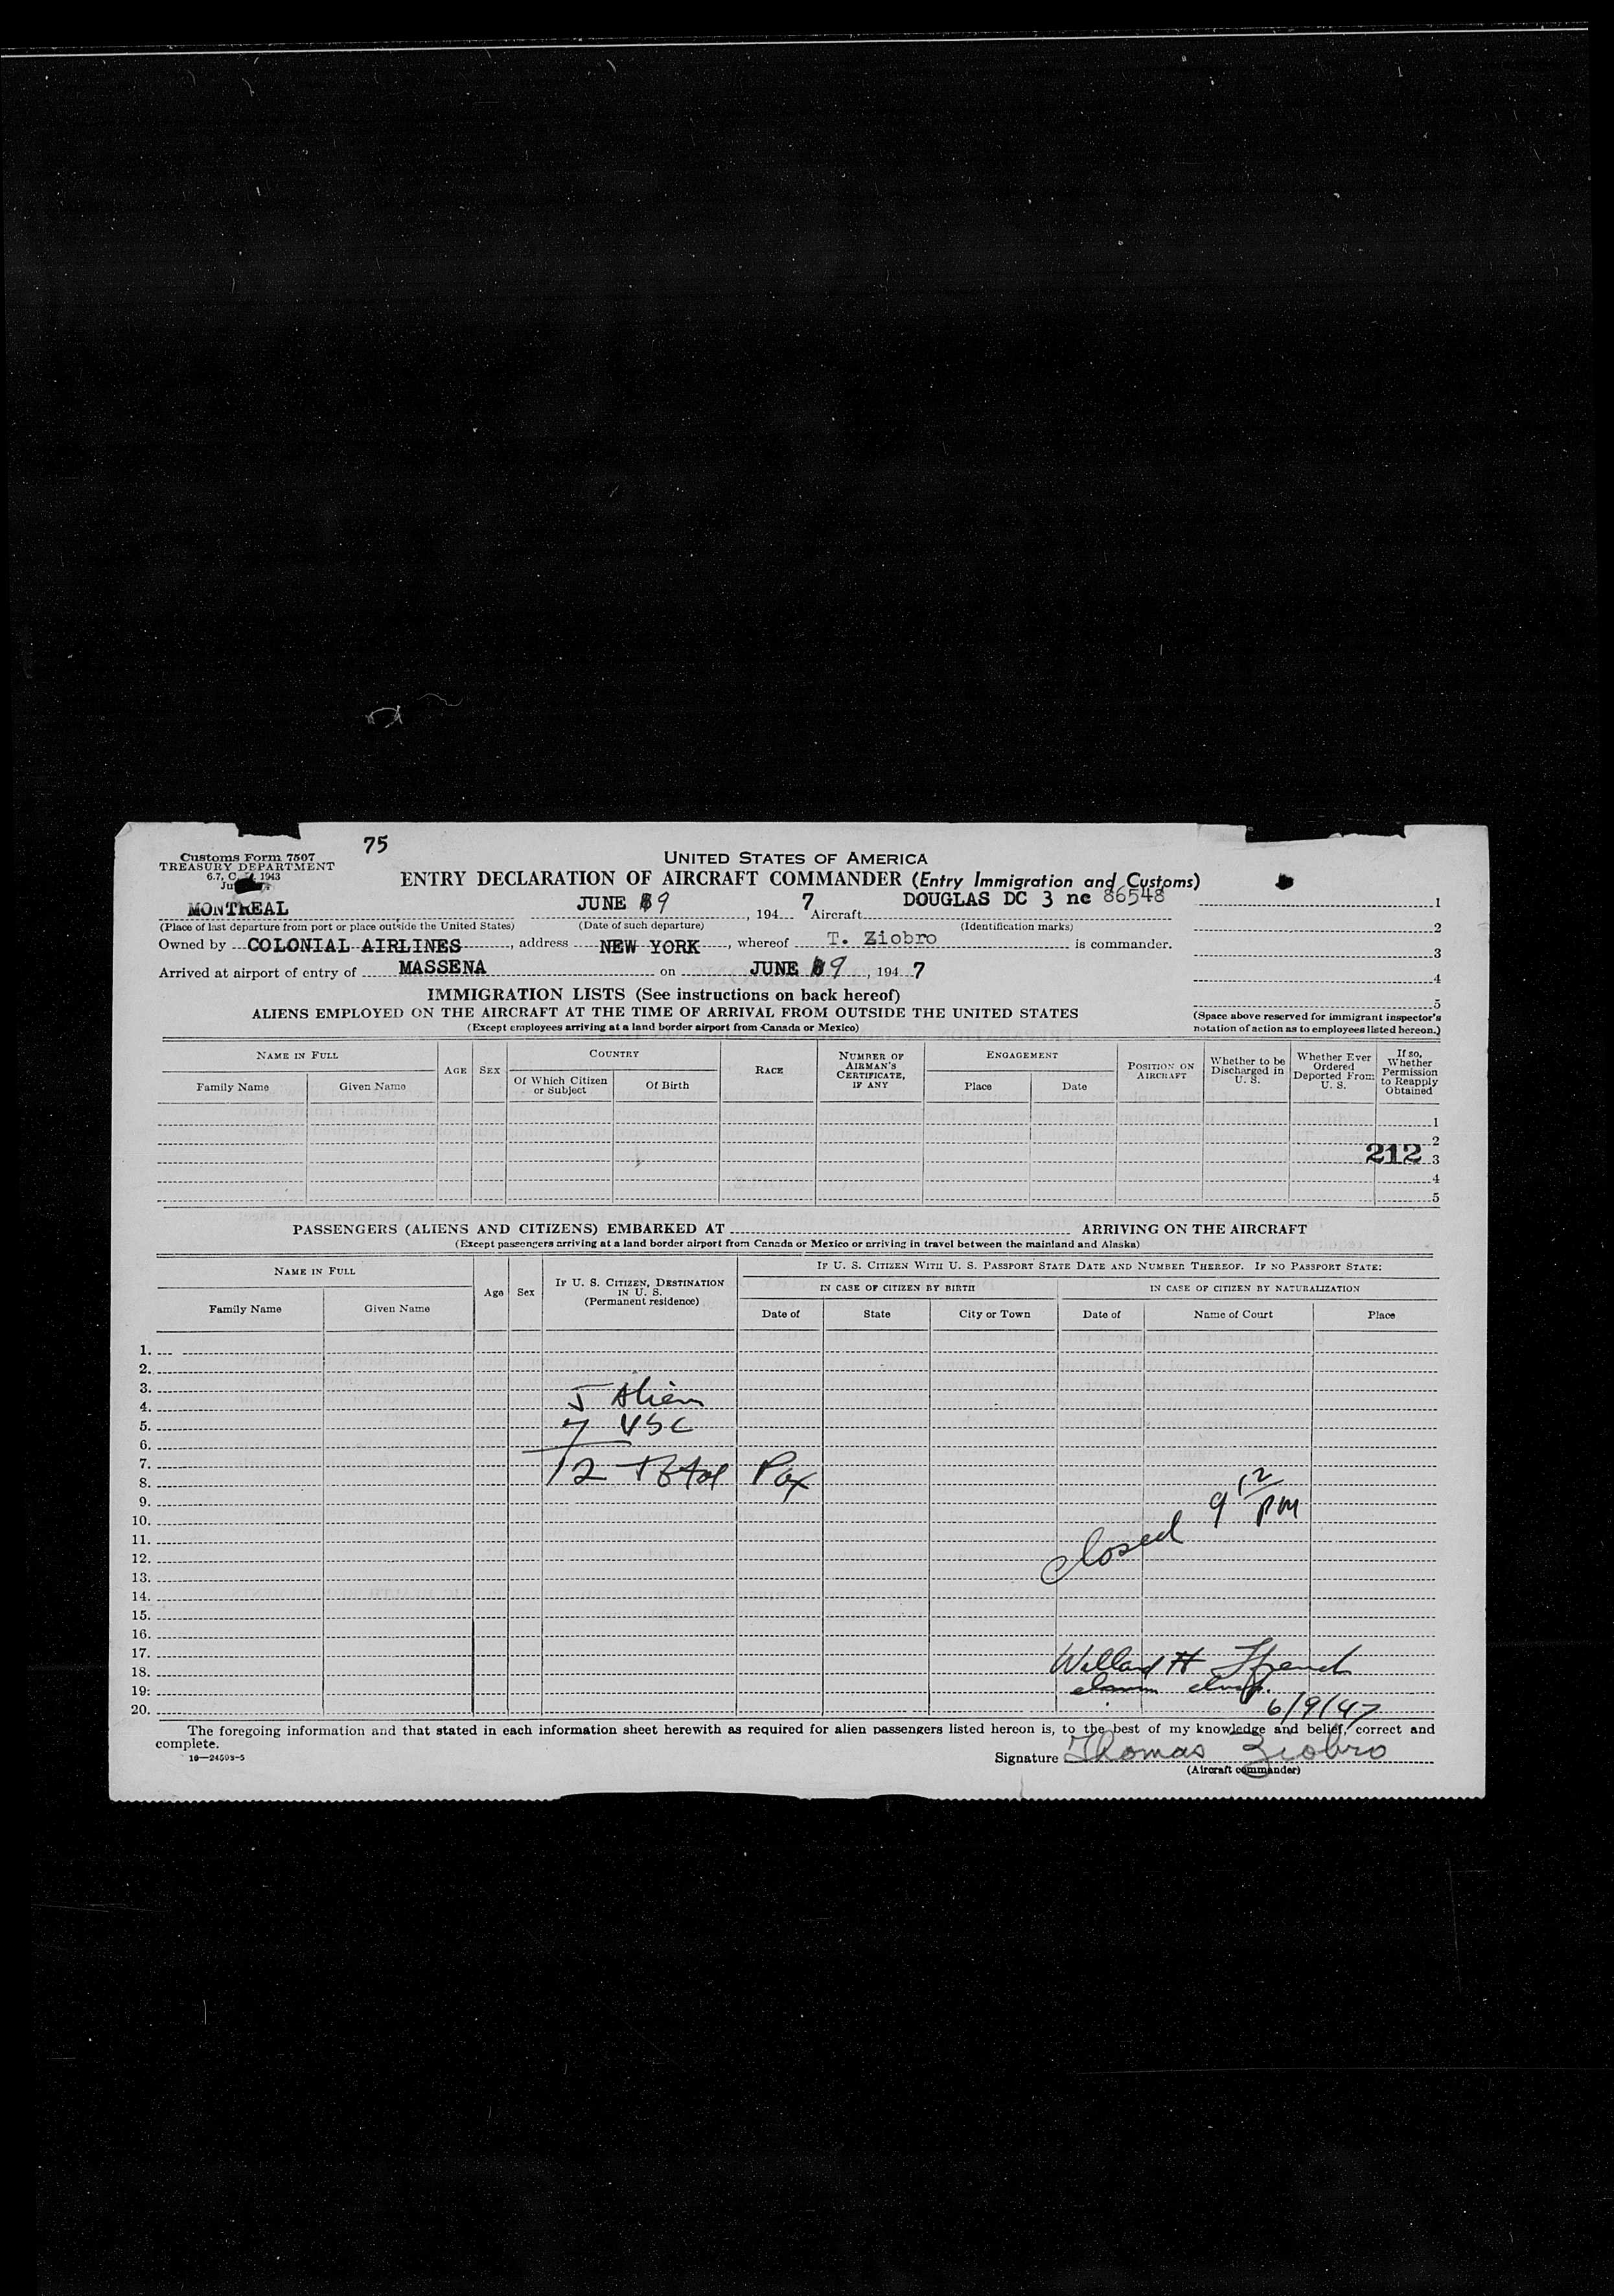 75
Customs Form 7507
TREASURY DEPARTMENT
UNITED STATES OF AMERICA
6.7, C. 1943
ENTRY DECLARATION OF AIRCRAFT COMMANDER (Entry Immigration and Customs)
MONTREAL JUNE 9, 1947 Aircraft DOUGLAS DC 3 nc 86548 1
(Place of last departure from port or place outside the United States) (Date of such departure) (Identification marks) 2
Owned by COLONIAL AIRLINES, address NEW YORK, whereof T. Ziobro is commander.
3
Arrived at airport of entry of MASSENA on JUNE 9, 1947
4
IMMIGRATION LISTS (See instructions on back hereof)
5
ALIENS EMPLOYED ON THE AIRCRAFT AT THE TIME OF ARRIVAL FROM OUTSIDE THE UNITED STATES
(Except employees arriving at a land border airport from Canada or Mexico)
(Space above reserved for immigrant inspector's
notation of action as to employees listed hereon.)
NAME IN FULL
Family Name Given Name
AGE
SEX
COUNTRY
Of Which Citizen or Subject Of Birth
RACE
NUMBER OF AIRMAN'S CERTIFICATE, IF ANY
ENGAGEMENT
Place Date
POSITION ON AIRCRAFT
Whether to be Discharged in U. S.
Whether Ever Ordered Deported From U. S.
If so, Whether Permission to Reapply Obtained
1
2
212 3
4
5
PASSENGERS (ALIENS AND CITIZENS) EMBARKED AT ARRIVING ON THE AIRCRAFT
(Except passengers arriving at a land border airport from Canada or Mexico or arriving in travel between the mainland and Alaska)
NAME IN FULL
Family Name Given Name
Age
Sex
IF U. S. CITIZEN, DESTINATION IN U. S.
(Permanent residence)
IF U. S. CITIZEN WITH U. S. PASSPORT STATE DATE AND NUMBER THEREOF. IF NO PASSPORT STATE:
IN CASE OF CITIZEN BY BIRTH IN CASE OF CITIZEN BY NATURALIZATION
Date of State City or Town Date of Name of Court Place
1.
2.
3.
4. 5 Alien
5. 7 USC
6.
7.
8. 12 Total Pax
9.
10. 9 12 PM
11.
12. Closed
13.
14.
15.
16.
17.
18. Willard H
19.
20. 6/9/47
The foregoing information and that stated in each information sheet herewith as required for alien passengers listed hereon is, to the best of my knowledge and belief, correct and
complete.
Signature Thomas Ziobro
(Aircraft commander)